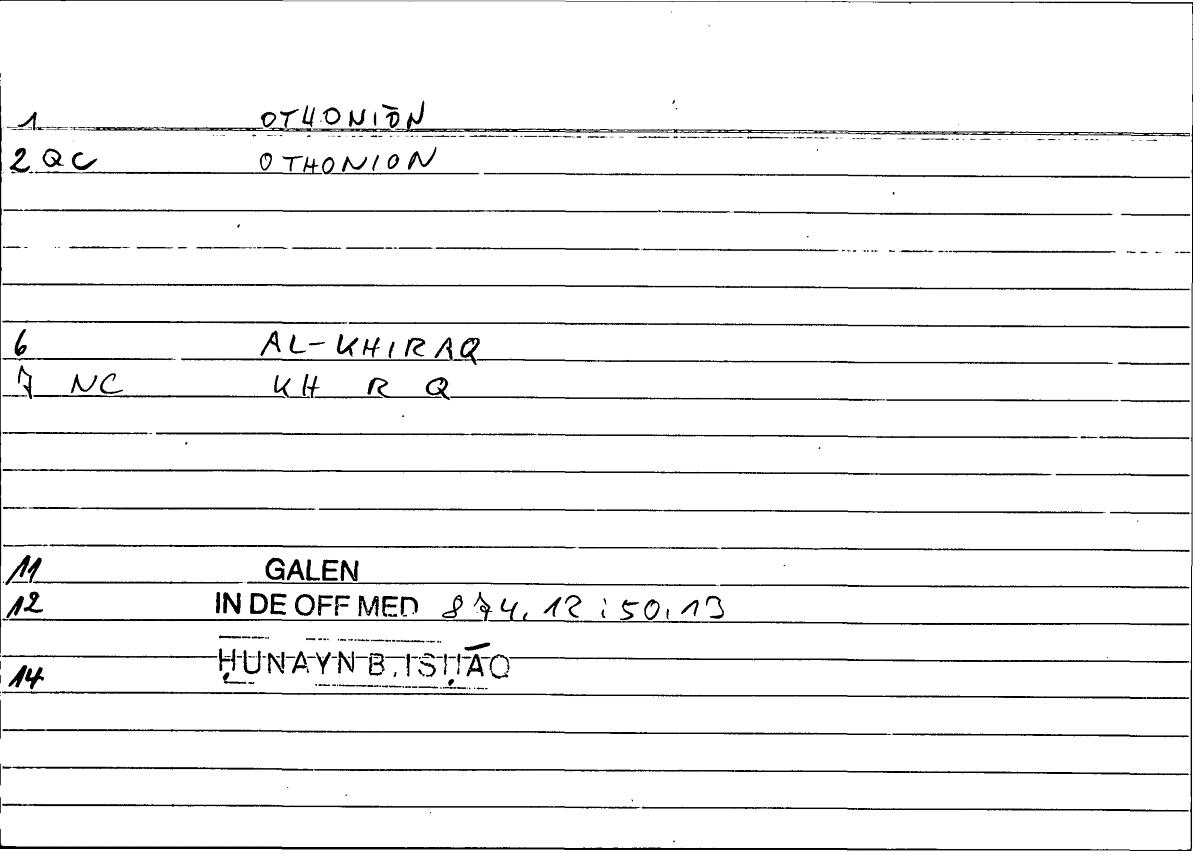 1 OTHONIŌN
2 QC OTHONION
6 AL-KHIRAQ
7 NC KH R Q
11 GALEN
12 IN DE OFF MED 874,12 : 50,13
14 ḤUNAYN B. ISḤĀQ